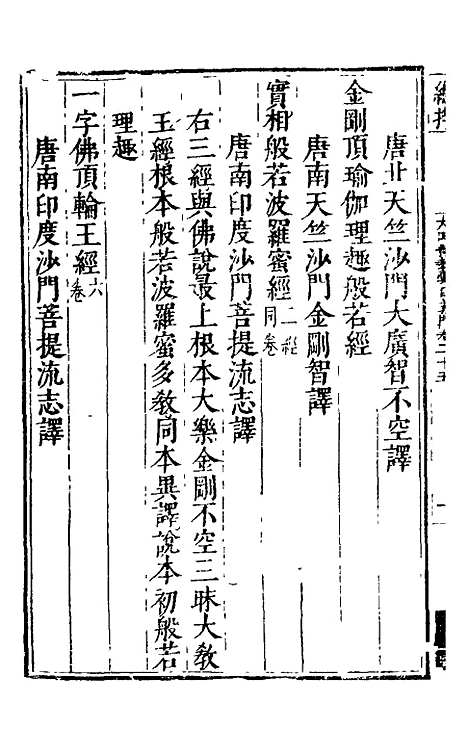 唐北天竺沙門大廣智不空譯
金剛頂瑜伽理趣般若經
唐南天竺沙門金剛智譯
實相般若波羅蜜經二經同卷
唐南印度沙門菩提流志譯
右三經與佛說最上根本大樂金剛不空三昧大教
王經根本般若波羅蜜多教同本異譯說本初般若
理趣
一字佛頂輪王經六卷
唐南印度沙門菩提流志譯